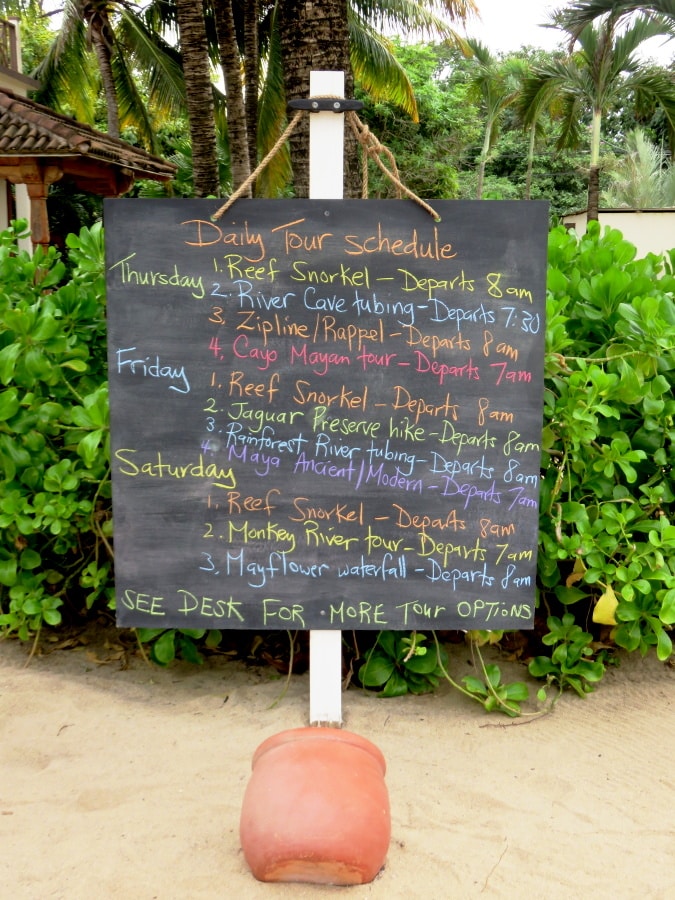 Daily Tour schedule
Thursday 1. Reef Snorkel - Departs 8am
2. River Cave tubing - Departs 7:30
3, Zipline/Rappel - Departs 8am
4, Cayo Mayan tour - Departs 7am
Friday 1. Reef Snorkel - Departs 8am
2. Jaguar Preserve hike - Departs 8am
3. Rainforest River tubing - Departs 8am
4. Maya Ancient/Modern - Departs 7am
Saturday
1. Reef Snorkel - Departs 8am
2. Monkey River tour - Departs 7am
3, Mayflower waterfall - Departs 8am
SEE DESK FOR MORE TOUR OPTIONS